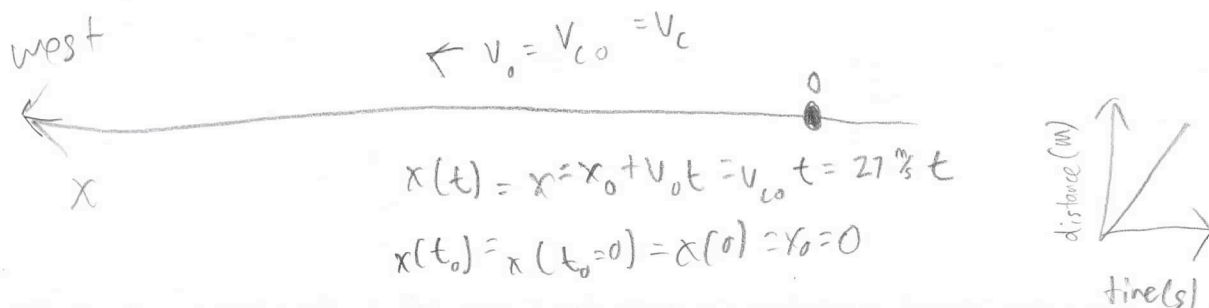 west
← V₀ = V_C0 = V_C
0
x
x(t) = x = x₀ + V₀t = V_C0 t = 27 m/s t
x(t₀) = x(t₀=0) = x(0) = x₀ = 0
distance (m)
time(s)